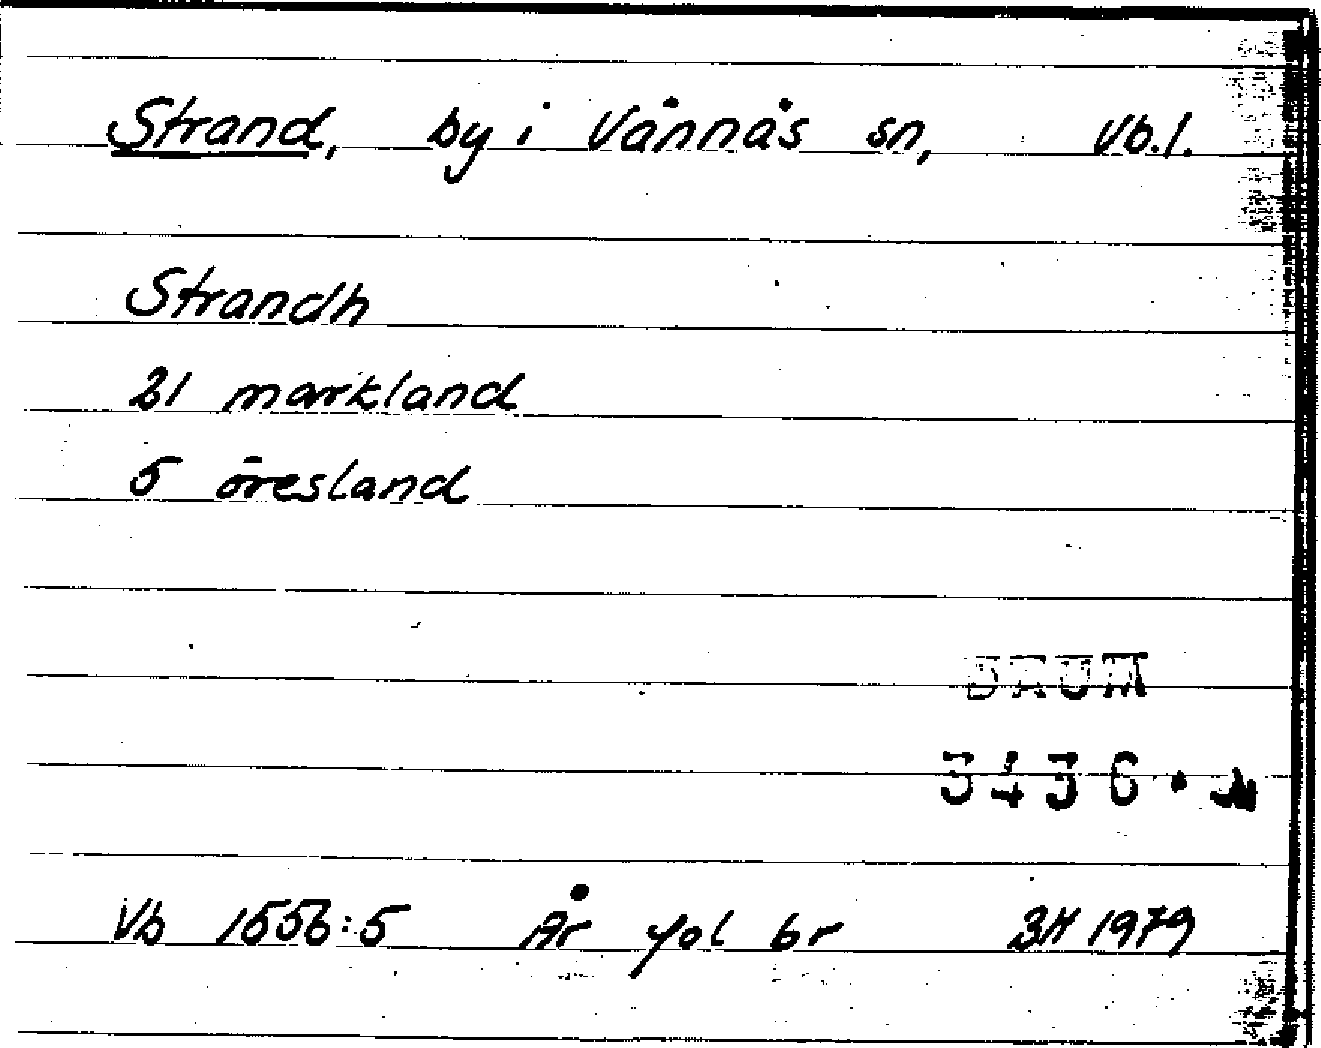 Strand, by i Vännäs sn, Vb.l.
Strandh
21 markland
5 öresland
DAUM
3436
Vb 1556:5 År fol 6r BH 1979